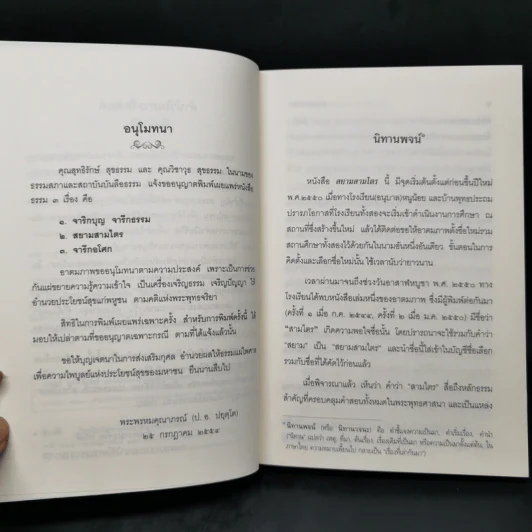 อนุโมทนา
คุณสุทธิรักษ์ สุขธรรม และ คุณวิชาวุธ สุขธรรม ในนามของ
ธรรมสภาและสถาบันบันลือธรรม แจ้งขออนุญาตพิมพ์เผยแพร่หนังสือ
ธรรม ๓ เรื่อง คือ
๑. จาริกบุญ จารึกธรรม
๒. สยามสามไตร
๓. จารึกอโศก
อาตมภาพขออนุโมทนาตามความประสงค์ เพราะเป็นการช่วย
กันเผยแผ่ขยายความรู้ความเข้าใจ เป็นเครื่องเจริญธรรม เจริญปัญญา ให้
อำนวยประโยชน์สุขแก่พหูชน ตามคติแห่งพระพุทธจริยา
สิทธิในการพิมพ์เผยแพร่เฉพาะครั้ง สำหรับการพิมพ์ครั้งนี้ ได้
มอบให้เปล่าตามที่ขออนุญาตเฉพาะกรณี ตามที่ได้แจ้งแล้วนั้น
ขอให้บุญเจตนาในการส่งเสริมกุศล อำนวยผลให้ธรรมแผ่ไพศาล
เพื่อความไพบูลย์แห่งประโยชน์สุขของมหาชน ยืนนานสืบไป
พระพรหมคุณาภรณ์ (ป. อ. ปยุตฺโต)
๒๕ กรกฎาคม ๒๕๕๔
นิทานพจน์*
หนังสือ สยามสามไตร นี้ มีจุดเริ่มต้นตั้งแต่ก่อนขึ้นปีใหม่
พ.ศ.๒๕๕๐ เมื่อทางโรงเรียน(อนุบาล)หนูน้อย และบ้านพุทธประถม
ปรารภโอกาสที่โรงเรียนทั้งสองจะเริ่มเข้าดำเนินงานการศึกษา ณ
สถานที่ซึ่งสร้างขึ้นใหม่ แล้วได้ติดต่อขอให้อาตมภาพตั้งชื่อใหม่รวม
สถานศึกษาทั้งสองไว้ด้วยกันในนามอันหนึ่งอันเดียว ขั้นตอนในการ
คิดตั้งและเลือกชื่อใหม่นั้น ใช้เวลานับว่ายาวนาน
เวลาผ่านมาจนถึงช่วงวันอาสาฬหบูชา พ.ศ. ๒๕๕๐ ทาง
โรงเรียนได้พบหนังสือเล่มหนึ่งของอาตมภาพ ซึ่งมีผู้พิมพ์ต่อกันมา
(ครั้งที่ ๑ เมื่อ ก.ค. ๒๕๔๔, ครั้งที่ ๒ เมื่อ ม.ค. ๒๕๕๐) มีชื่อว่า
"สามไตร" เกิดความพอใจชื่อนั้น โดยปรารถนาจะใช้รวมกับคำว่า
"สยาม" เป็น "สยามสามไตร" และนำชื่อนี้ใส่เข้าในบัญชีชื่อเลือก
รวมกับชื่อที่ได้คัดไว้ก่อนแล้ว
เมื่อพิจารณาแล้ว เห็นว่า คำว่า "สามไตร" สื่อถึงหลักธรรม
สำคัญที่ครอบคลุมคำสอนทั้งหมดในพระพุทธศาสนา และเป็นแหล่ง
* นิทานพจน์ (หรือ นิทานวจนะ) คือ คำชี้แจงความเป็นมา, คำเริ่มเรื่อง, คำนำ
("นิทาน" แปลว่า เหตุ, ที่มา, ต้นเรื่อง, เรื่องเดิมที่เป็นมา หรือความเป็นมาแต่เดิม; ใน
ภาษาไทย ความหมายเพี้ยนไป กลายเป็น "เรื่องที่เล่ากันมา")